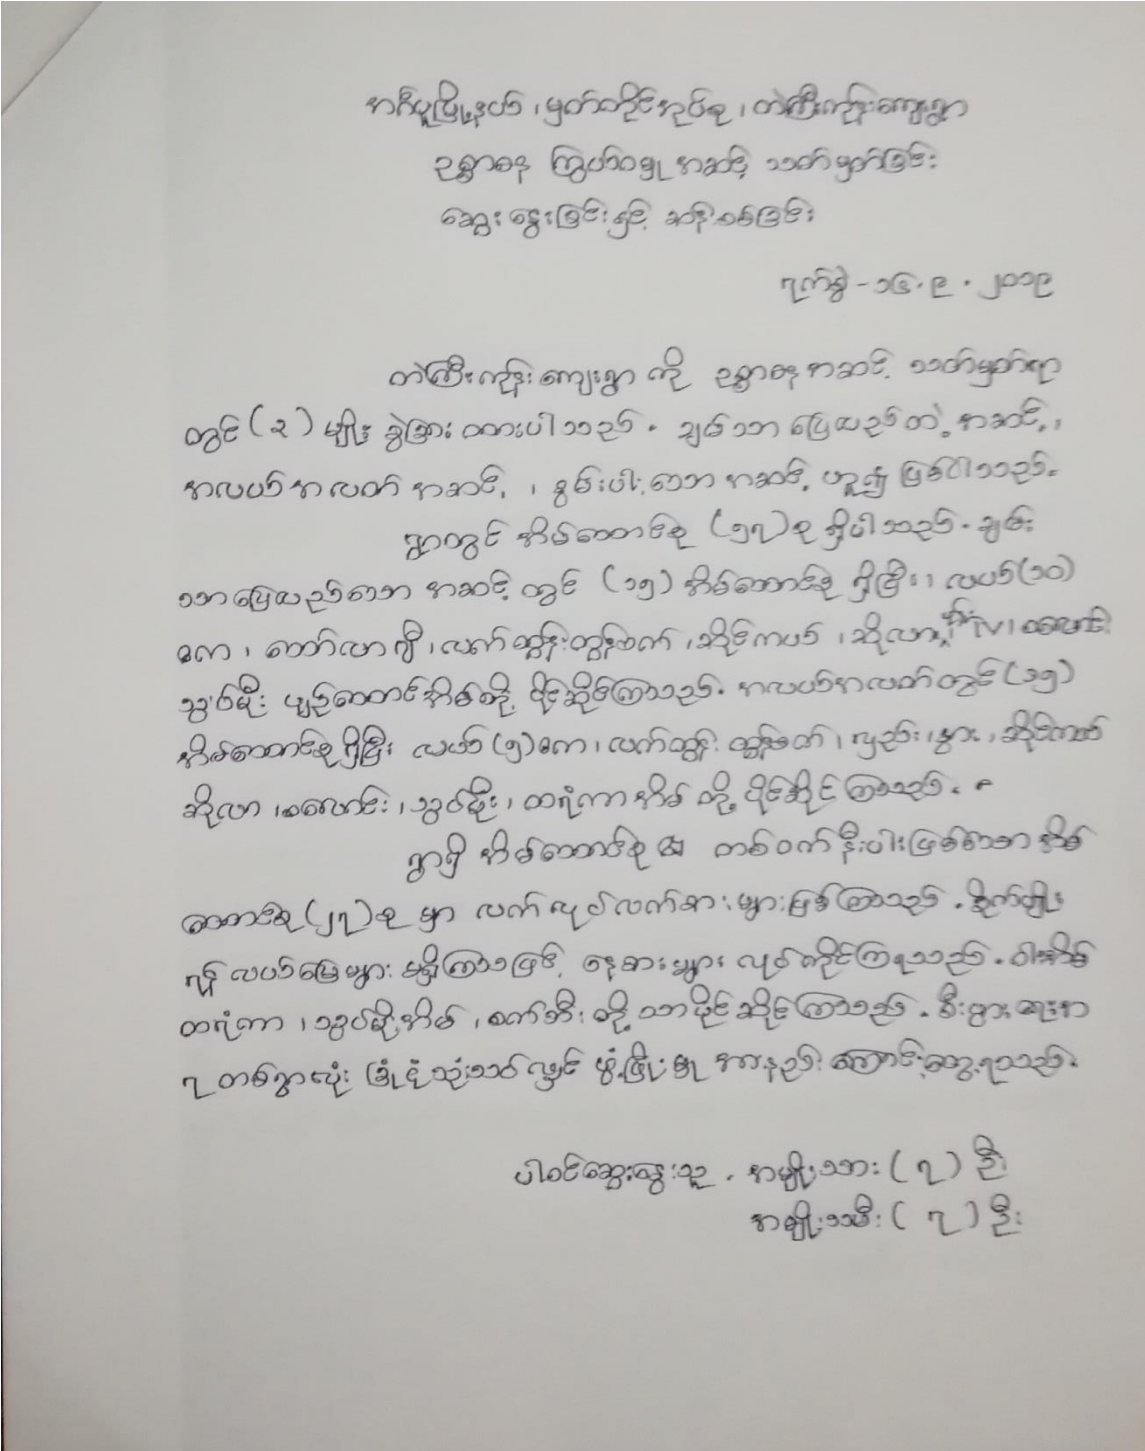 အင်္ဂပူမြို့နယ် ၊ မှတ်တိုင်အုပ်စု ၊ တဲကြီးကုန်းကျေးရွာ
ဥစ္စာဓန ကြွယ်ဝမှု အဆင့် သတ်မှတ်ခြင်း
ဆွေးနွေးခြင်းနှင့် ဆန်းစစ်ခြင်း
ရက်စွဲ - ၁၆.၉.၂၀၁၉
တဲကြီးကုန်းကျေးရွာ ကို ဥစ္စာဓနအဆင့် သတ်မှတ်ရာ
တွင် (၃) မျိုး ခွဲခြား ထားပါသည်။ ချမ်သာ ပြေလည်တဲ့ အဆင့်၊
အလယ်အလတ် အဆင့် ၊ နွမ်းပါးသော အဆင့် ဟူ၍ ဖြစ်ပါသည်။
ရွာတွင် အိမ်ထောင်စု (၅၇) စု ရှိပါသည်။ ချမ်း
သာပြေလည်သော အဆင့် တွင် (၁၅) အိမ်ထောင်စု ရှိပြီး၊ လယ်(၁၀)
ဧက ၊ ထော်လာဂျီ ၊ လက်တွန်းထွန်စက် ၊ ဆိုင်ကယ် ၊ ဆိုလာ၊ TV ၊ စလောင်း
သွပ်မိုး ပျဉ်ထောင်အိမ်တို့ ပိုင်ဆိုင်ကြသည်။ အလယ်အလတ်တွင် (၁၅)
အိမ်ထောင်စုရှိပြီး လယ် (၅) ဧက ၊ လက်တွန်း ထွန်စက် ၊ လှည်း ၊ နွား ၊ ဆိုင်ကယ်
ဆိုလာ ၊ စလောင်း ၊ သွပ်မိုး ၊ ထရံကာအိမ် တို့ ပိုင်ဆိုင်ကြသည်။
ရွာရှိ အိမ်ထောင်စု ၏ တစ်ဝက် နီးပါးဖြစ်သော အိမ်
ထောင်စု (၂၇) စု မှာ လက်လုပ်လက်စားများဖြစ်ကြသည်။ စိုက်ပျိုး
ရန် လယ်မြေများ မရှိကြသဖြင့် နေ့စားများ လုပ်ကိုင်ကြရသည်။ ဝါးအိမ်
ထရံကာ ၊ သွပ်မိုးအိမ် ၊ စက်ဘီး တို့သာ ပိုင်ဆိုင်ကြသည်။ စီးပွားရေးအ
ရ တစ်ရွာလုံး ခြုံငုံသုံးသပ်လျှင် ဖွံ့ဖြိုးမှု အားနည်းကြောင်းတွေ့ရသည်။
ပါဝင်ဆွေးနွေးသူ - အမျိုးသား ( ၇ ) ဦး
အမျိုးသမီး ( ၇ ) ဦး